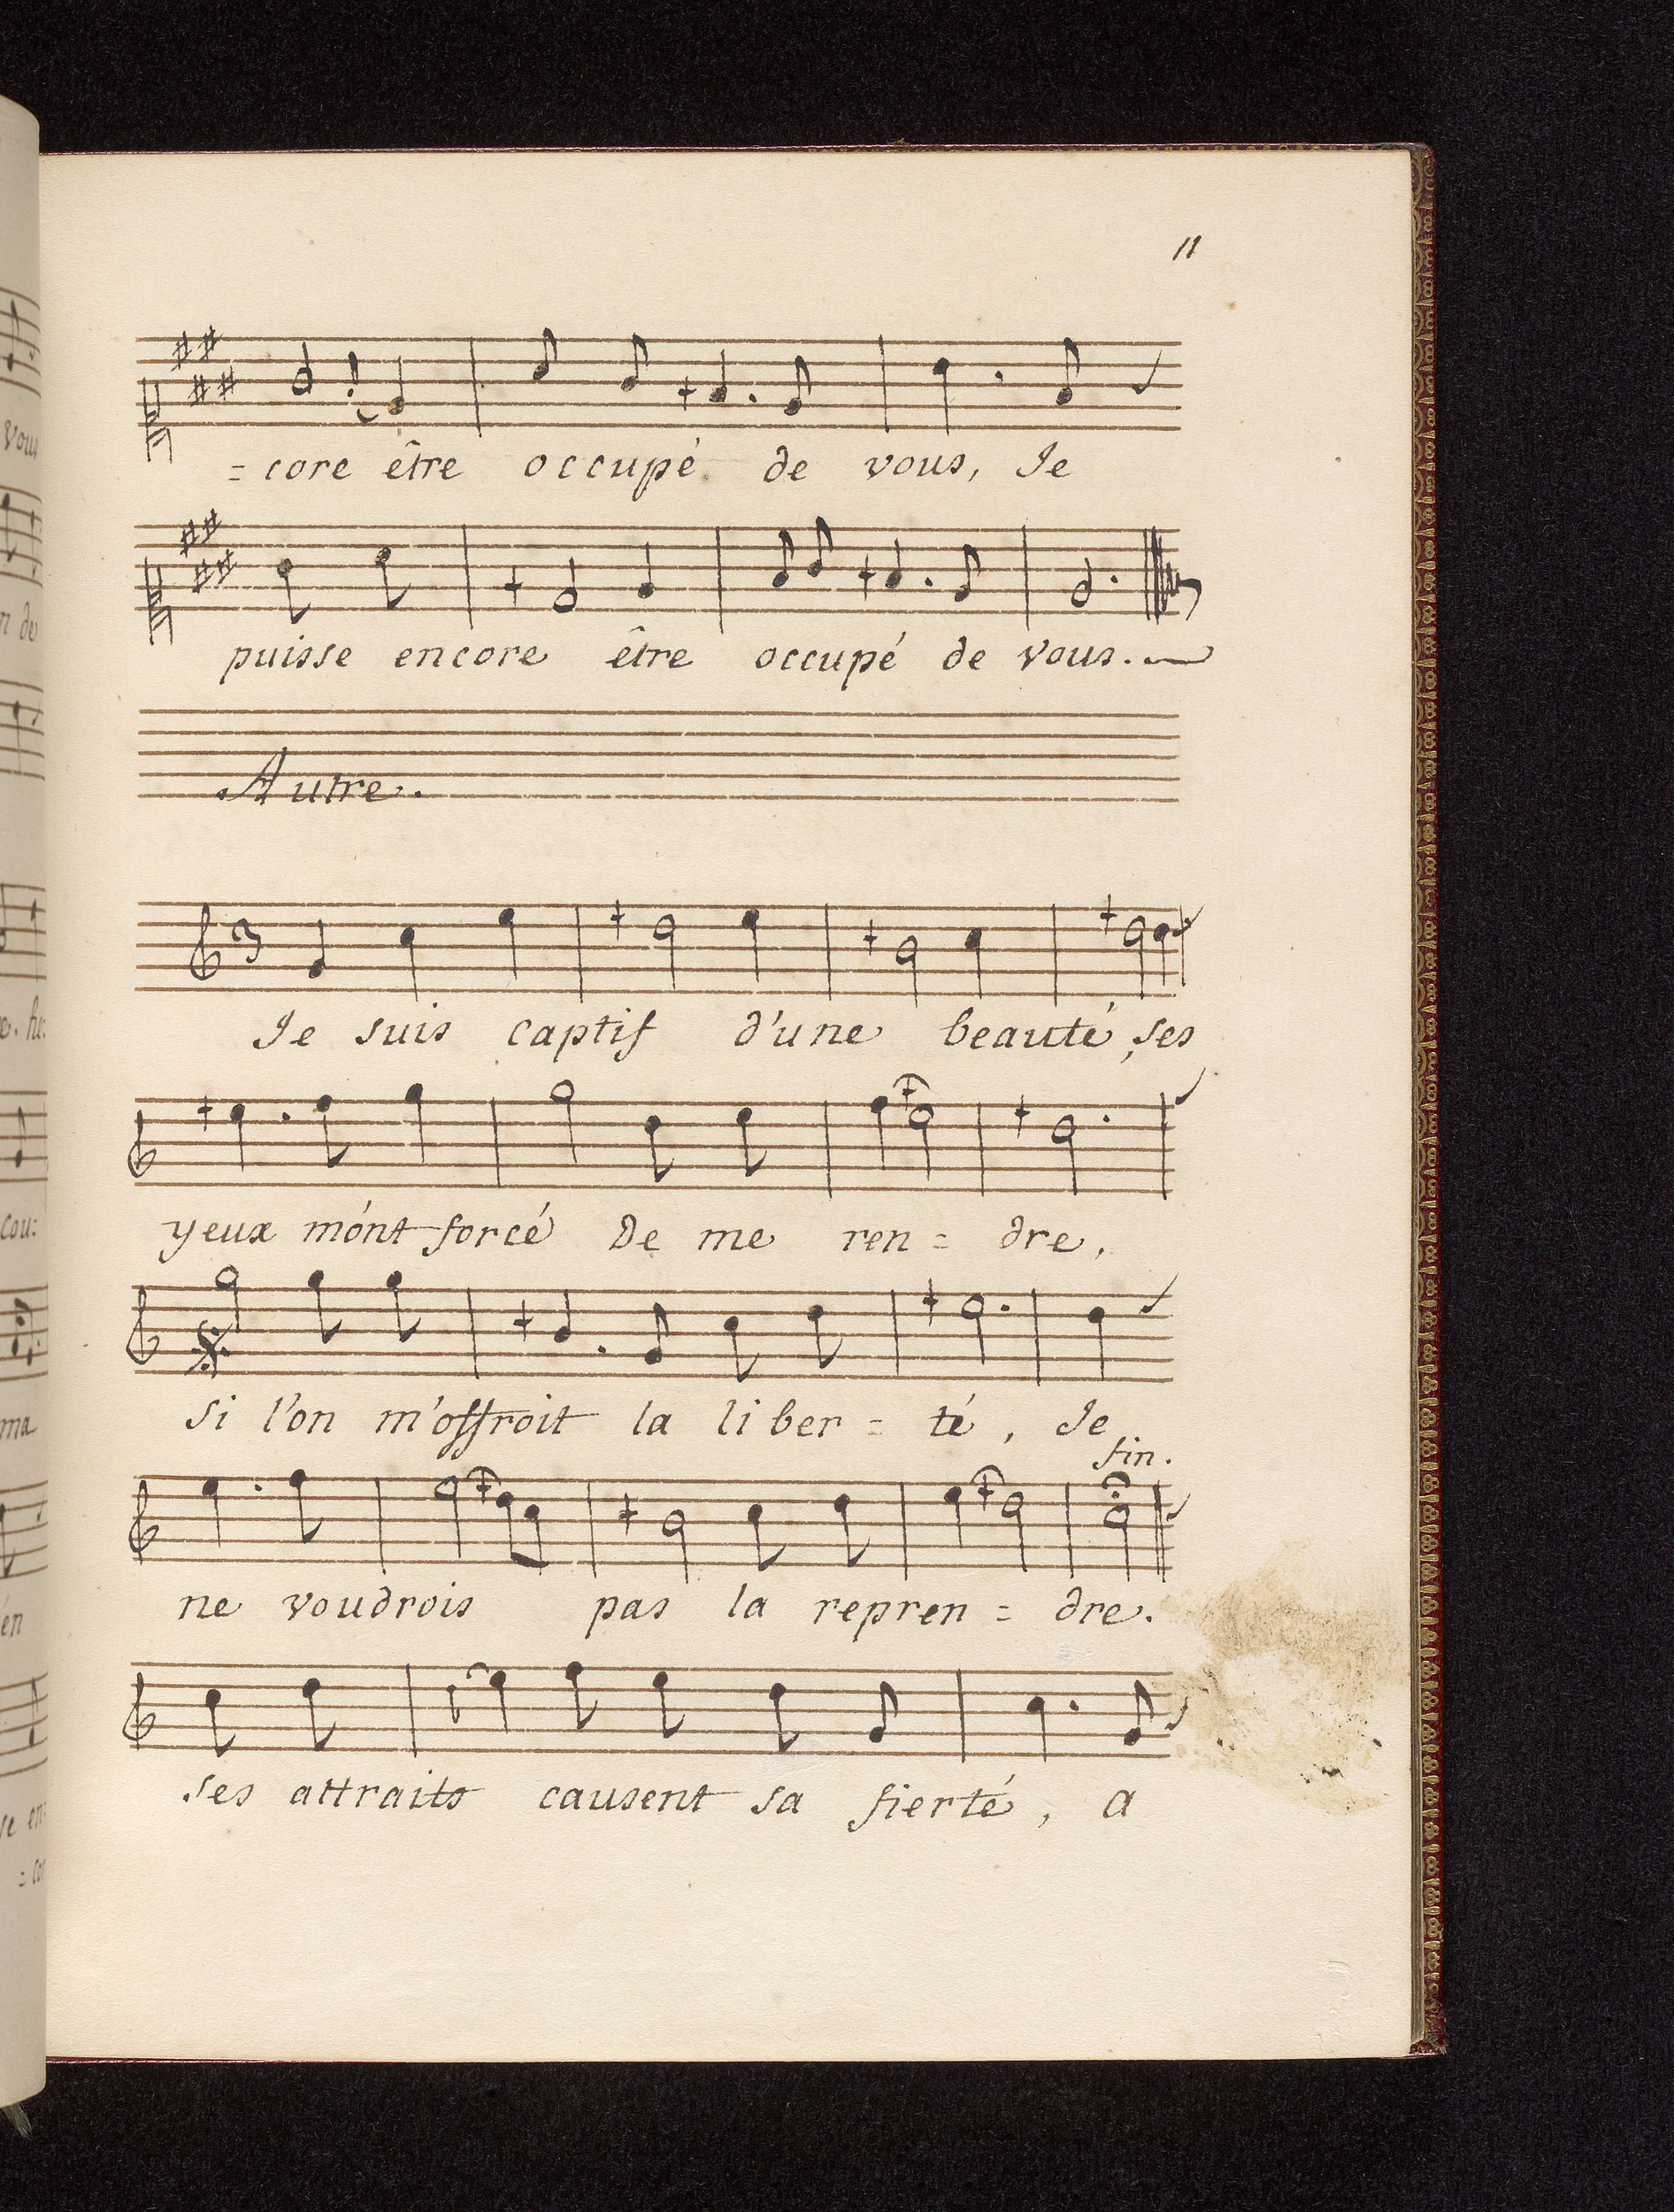 11
=core être occupé de vous, Je
puisse encore être occupé de vous.
Autre.
Je suis captif d'une beauté, ses
yeux m'ont forcé De me ren= dre,
si l'on m'offroit la liber= té, Je
fin.
ne voudrois pas la repren= dre.
ses attraits causent sa fierté, a